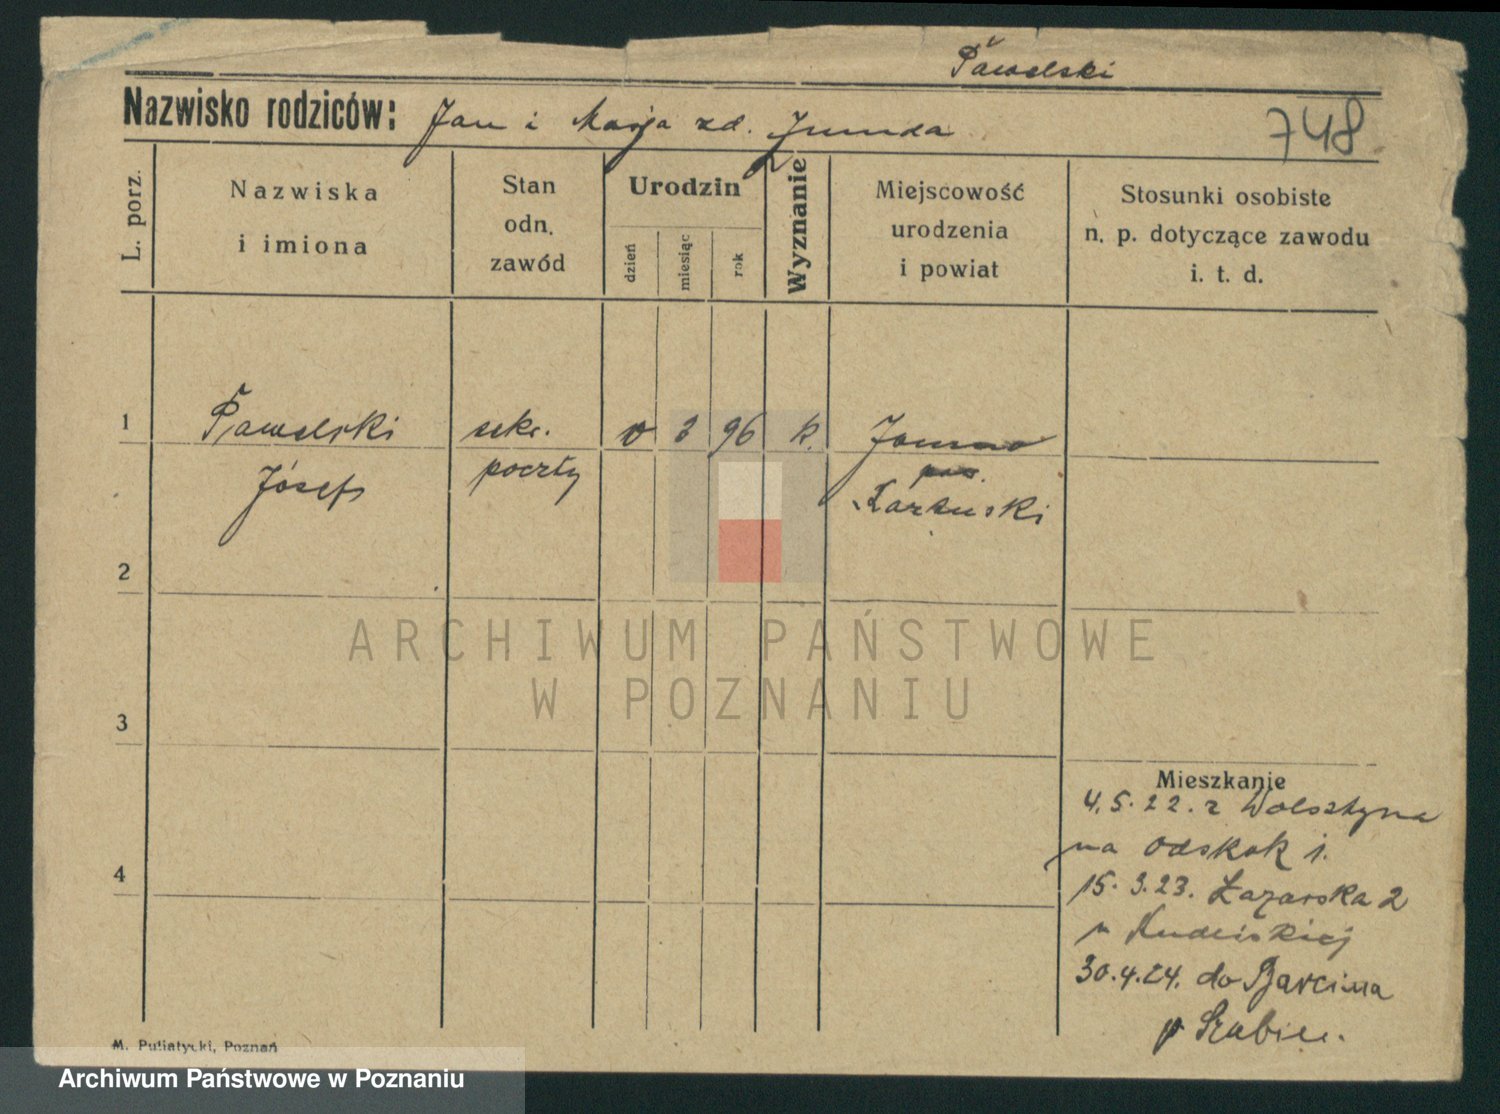 Pawelski
Nazwisko rodziców: Jan i Marja zd. Junuda
748
L. porz.
Nazwiska
i imiona
Stan
odn.
zawód
Urodzin
dzień
miesiąc
rok
Wyznanie
Miejscowość
urodzenia
i powiat
Stosunki osobiste
n. p. dotyczące zawodu
i. t. d.
1
Pawelski
Józef
sekr.
poczty
3
96
k.
2
ARCHIWUM PAŃSTWOWE
W POZNANIU
3
4
Mieszkanie
4.5.22. z Wolsztyna
na Odskok 1.
15.3.23. Łazarska 2
30.4.24. do Barcina
p Szubin.
M. Putiatycki, Poznań
Archiwum Państwowe w Poznaniu